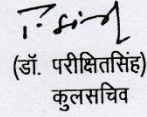 (डॉ. परीक्षितसिंह)
कुलसचिव